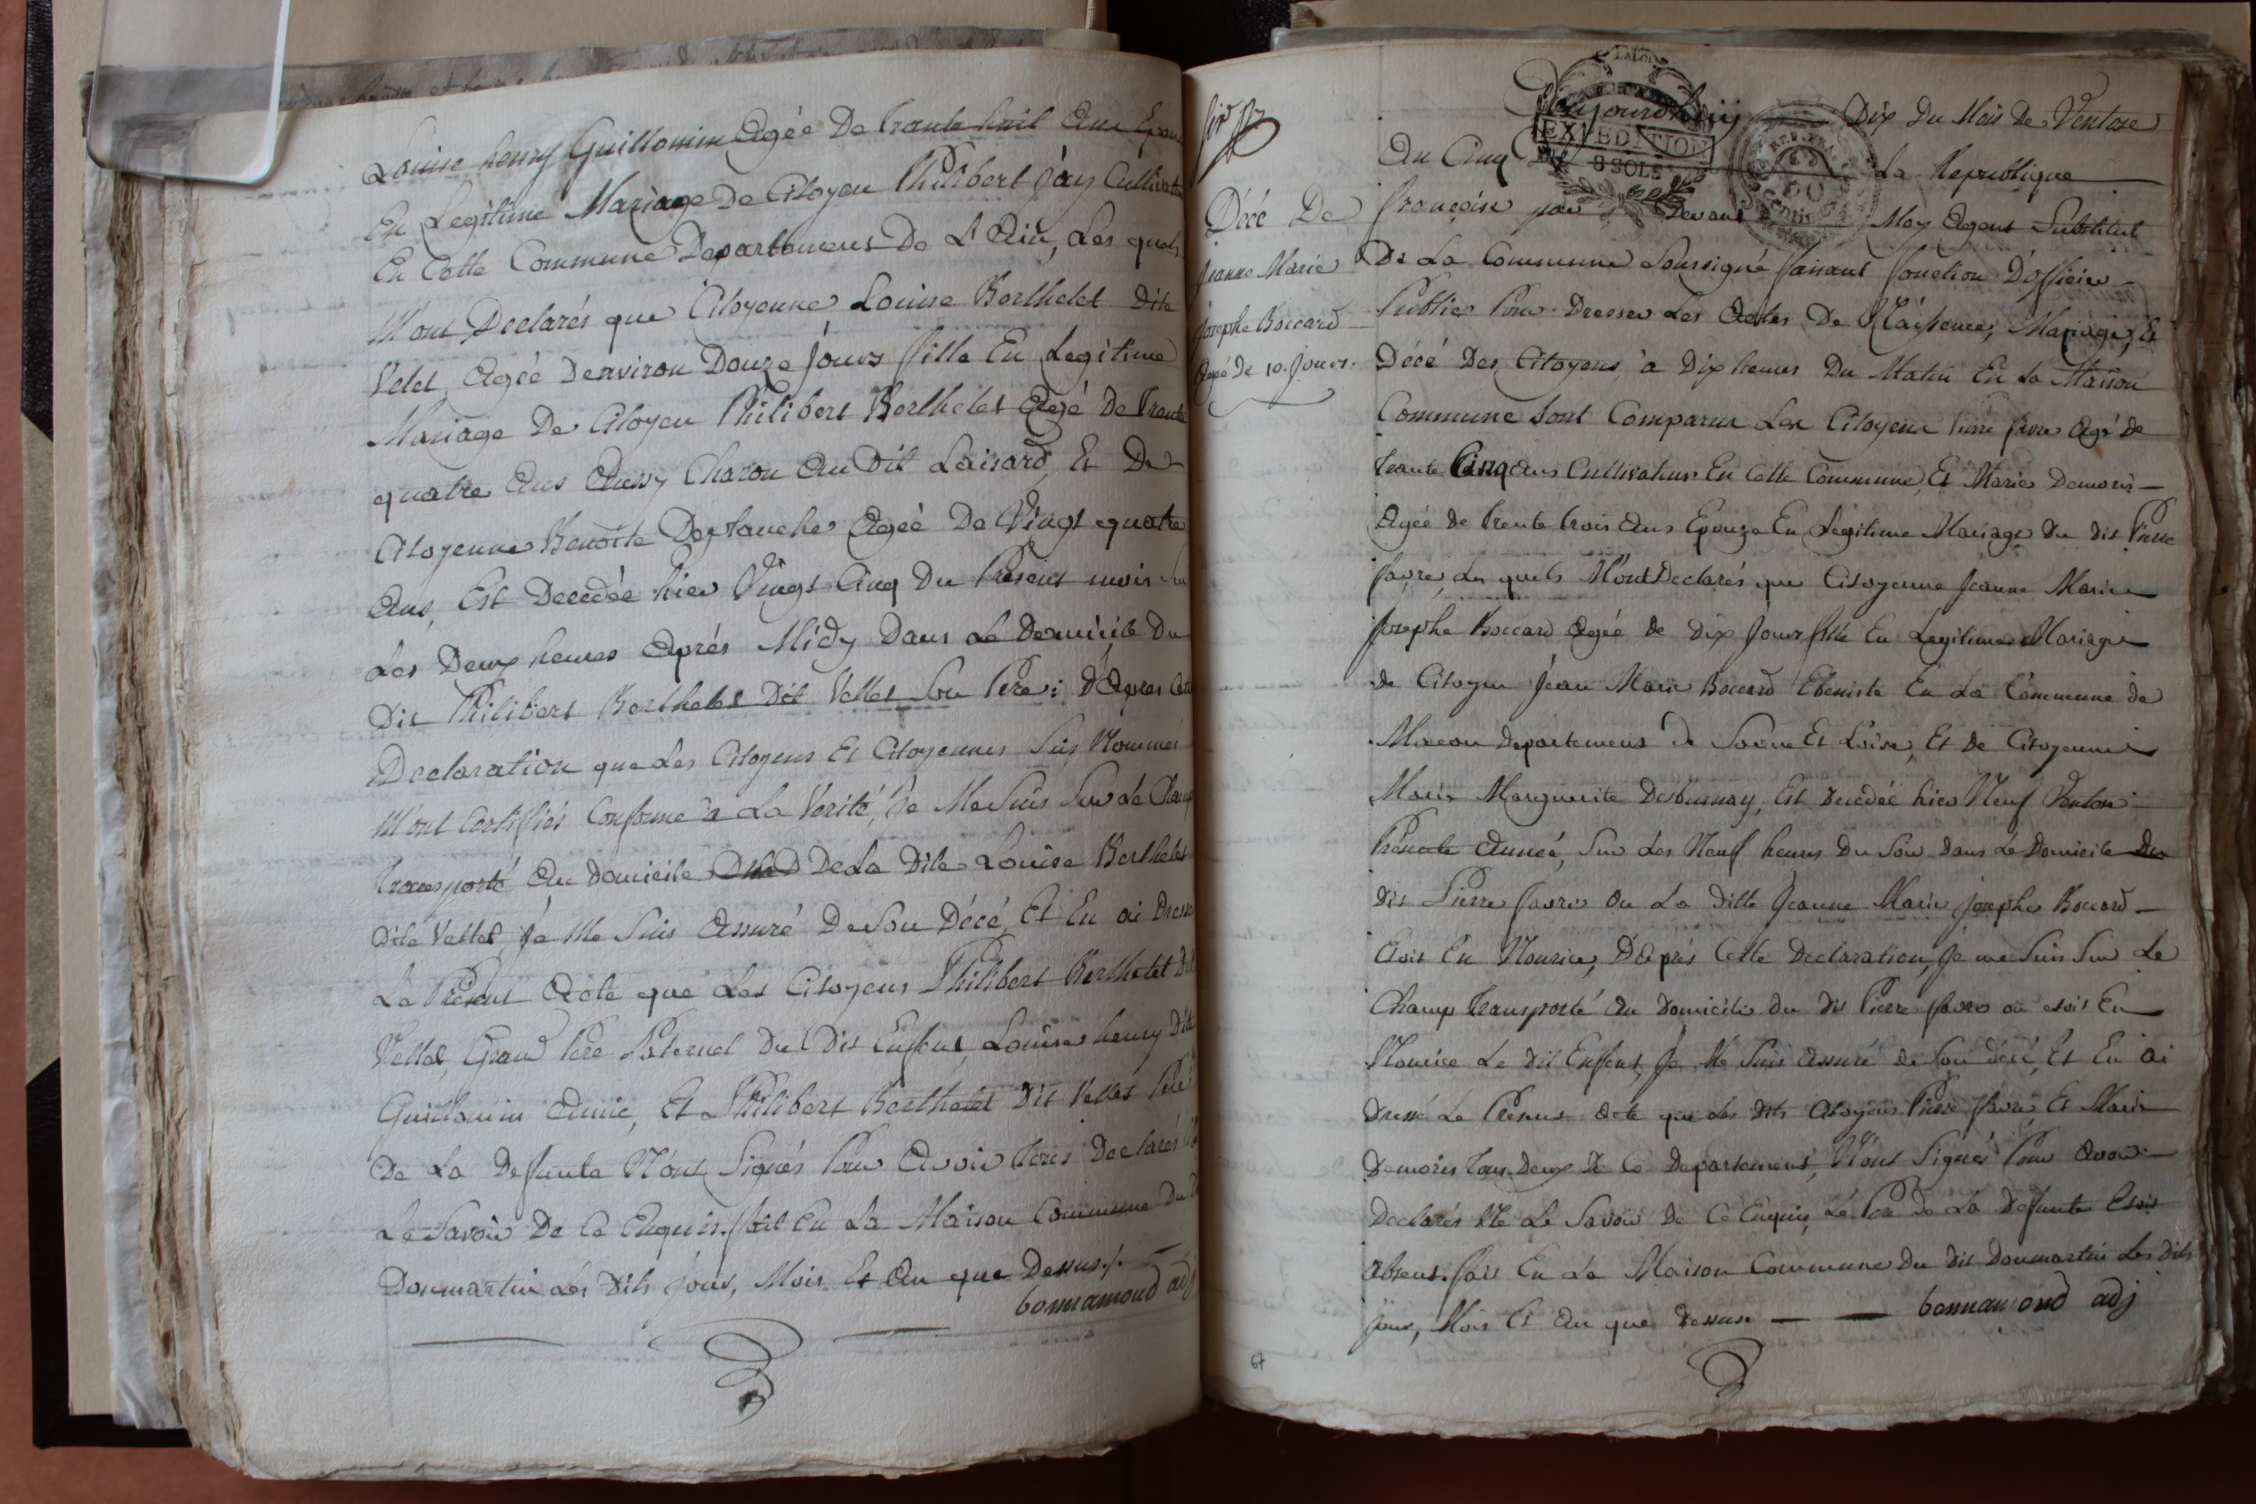 Louise henry Guillomin Agée De Trante huit Ans Epou
En Legitime Mariage De Citoyen Philibert Jay Cultivate
En Cette Commune Departement De L'Ain, Les quels
M'ont Declarés que Citoyenne Louise Berthelet Dite
Velet, Agée Denviron Douze Jours fille En Legitime
Mariage De Citoyen Philibert Berthelet Agé De Trante
quatre Ans Aussy Charon Au Dit Laisard, Et De
Citoyenne Benoite Desplanches Agée De Vingt quatre
Ans, Est Decedée hier Vingt Cinq Du Present mois Sur
Les Deux heures Aprés Midy Dans Le Domicile Du
Dit Philibert Berthelet Dit Vellet Son Pere; D'Apres Cette
Declaration que Les Citoyens Et Citoyennes Sus Nommés
M'ont Certifiés Conforme a La Verité, Je Me Suis Sur Le Champ
Transporté Au Domicile De La Dite Louise Berthelet
Dite Vellet Je Me Suis Assuré De Son Décé, Et En ai Dressé
Le Present Acte que Les Citoyens Philibert Berthelet Dit
Vellet, Grand Pere Paternel Du Dit Enfent, Louise henry Dite
Guillomin Amie, Et Philibert Berthelet Dit Vellet Pere
De La Defunte N'ont Signés Pour Avoir Declarés
Le Savoir De Ce Enquis. fait En La Maison Commune Du
Donmartin Les Dits Jour, Mois Et An que Dessus./.
bonnamond adj
Aujourdhuy Dix Du Mois De Ventose
An Cinq La Republique
Décé De
Jeanne Marie
Josephe Boccard
Agé De 10. Jours.
françoise par Devant Moy Agent Substitut
De La Commune Soussigné faisant fonction D'officier
Public Pour Dresser Les Actes De Naissences, Mariage, Et
Décé Des Citoyens, à Dix heures Du Matin En La Maison
Commune Sont Comparus Les Citoyens Pierre favre Agé de
trante Cinq Ans Cultivateur En Cette Commune, Et Marie Demoris
Agée de Trente Trois Ans Epouze En Légitime Mariage Du dit Pierre
favre, Les quels M'ont Declarés que Citoyenne Jeanne Marie
Josephe Boccard Agée de Dix Jours fille En Legitime Mariage
de Citoyen Jean Marie Boccard Ebeniste En La Commune de
Macon departement de Saone Et Loire, Et de Citoyenne
Marie Marguerite Desbusnay, Est decedée hier Neuf Ventose
Presente Année, Sur Les Neuf heures Du Soir Dans Le Domicile Du
dit Pierre favre Ou La Ditte Jeanne Marie Josephe Boccard
Etoit En Nourice, D'Aprés Cette Declaration, Je me Suis Sur Le
Champ Transporté Au Domicile du dit Pierre favre ou etoit En
Nourice Le Dit Enfent, Je Me Suis Assuré de Son décé, Et En ai
dressé Le Present Acte que Les dits Citoyens Pierre favre Et Marie
Demoris tous Deux De Ce Departement, N'ont Signés Pour Avoir
Declarés Ne Le Savoir De Ce Enquis, Le Pere De La Defunte Etoit
Absent. fait En La Maison Commune Du dit Donmartin Les dits
Jour, Mois Et An que dessus
bonnamond adj
LA LOI
EXPEDITION
8 SOLS
67